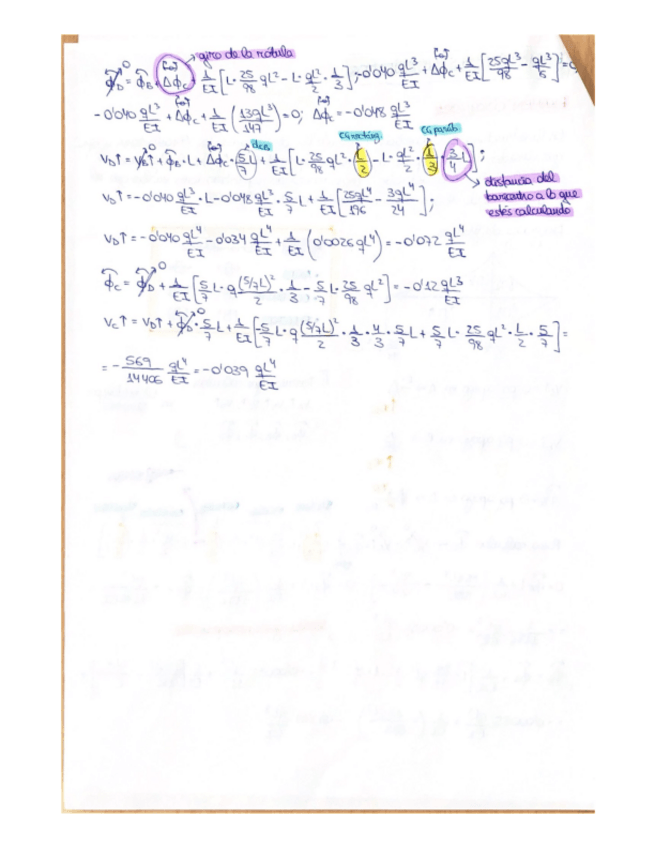 giro de la rótula
φ_D = φ_B + Δφ_C + 1/EI [L · 25/98 qL² - L · qL²/2 · 1/3]; -0'040 qL³/EI + Δφ_C + 1/EI [25qL³/98 - qL³/6] = 0;
-0'040 qL³/EI + Δφ_C + 1/EI (13qL³/147) = 0; Δφ_C = -0'048 qL³/EI
dcs CG rectáng. CG parab.
v_D↑ = v_B↑ + φ_B · L + Δφ_C · 5/7 L + 1/EI [L · 25/98 qL² · L/2 - L · qL²/2 · 1/3 · 3/4 L];
distancia del baricentro a lo que estés calculando
v_D↑ = -0'040 qL³/EI · L - 0'048 qL³/EI · 5/7 L + 1/EI [25qL⁴/196 - 3qL⁴/24];
v_D↑ = -0'040 qL⁴/EI - 0'034 qL⁴/EI + 1/EI (0'0026 qL⁴) = -0'072 qL⁴/EI
φ_C = φ_D + 1/EI [5/7 L · q(5/7L)²/2 · 1/3 - 5/7 L · 25/98 qL²] = -0'12 qL³/EI
v_C↑ = v_D↑ + φ_D · 5/7 L + 1/EI [-5/7 L · q(5/7L)²/2 · 1/3 · 4/3 · 5/7 L + 5/7 L · 25/98 qL² · L/2 · 5/7] =
= -569/14406 qL⁴/EI = -0'039 qL⁴/EI